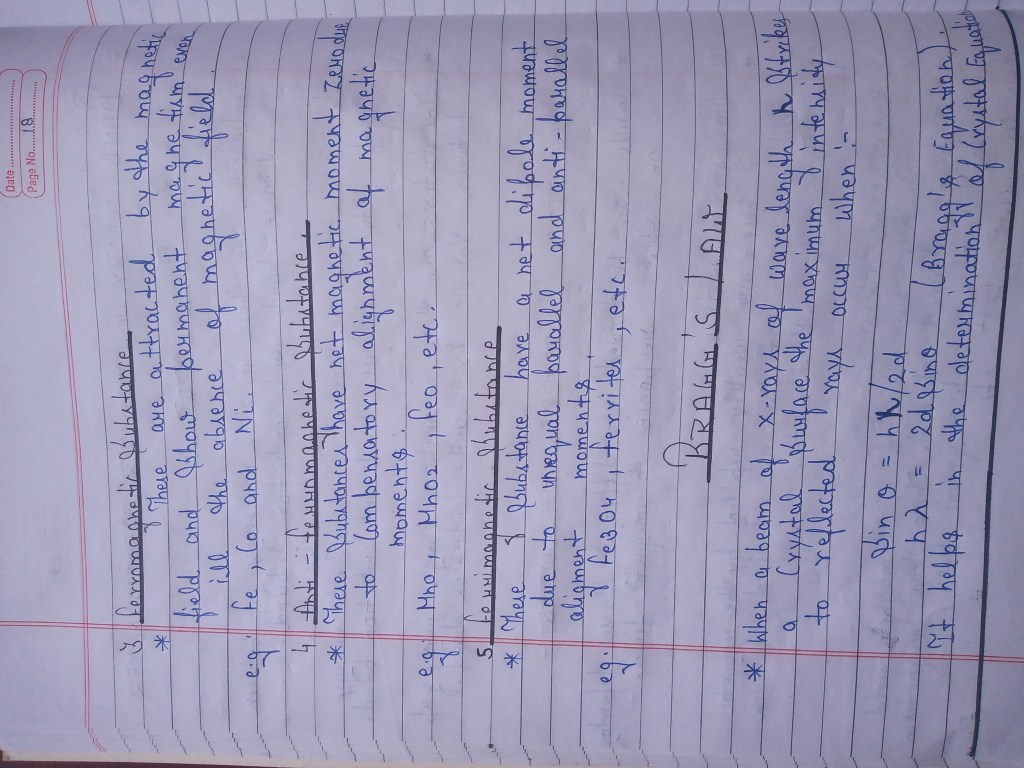 Date
Page No. 18
3 Ferromagnetic Substance
* These are attracted by the magnetic
field and show permanent magnetism even
ill the absene of magnetic field.
e.g. Fe, Co and Ni.
4 Anti-ferromagnetic Substance
* These substances have net magnetic moment zero due
to compensatory alignment of magnetic
moments.
e.g. MnO, MnO2, FeO, etc.
5 Ferrimagnetic Substance
* These substance have a net dipole moment
due to unequal parallel and anti-parallel
aligment moments.
e.g. Fe3O4, Ferrites, etc.
BRAGG'S LAW
* When a beam of x-rays of wave length λ strikes
a crystal surface the maximum intensity
to reflected rays occur when :-
Sin θ = nλ/2d
nλ = 2d sin θ (Bragg's Equation).
It helps in the determination of crystal Equation